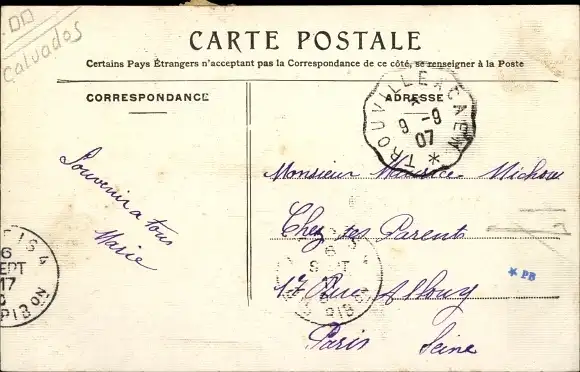 .00
Calvados
CARTE POSTALE
Certains Pays Étrangers n'acceptant pas la Correspondance de ce côté, se renseigner à la Poste
CORRESPONDANCE
ADRESSE
TROUVILLE A CAEN
9 -9
07
Souvenir a tous
Marie
Monsieur Maurice
Chez ses Parents
17 Rue
Paris Seine
PB